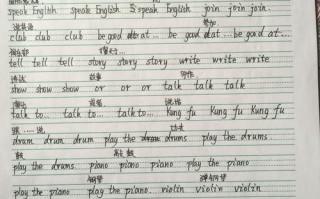 speak English speak English speak English join join join.
说英语 参加
club club club be good at ... be good at ... be good at ...
俱乐部 擅长于...
tell tell tell story story story write write write
讲述 故事 写作
show show show or or or talk talk talk
或者 说话
talk to... talk to... talk to... Kung fu Kung fu Kung fu
跟......说
drum drum drum play the drums play the drums.
鼓
play the drums. piano piano piano play the piano
钢琴 弹钢琴
play the piano play the piano. violin violin violin